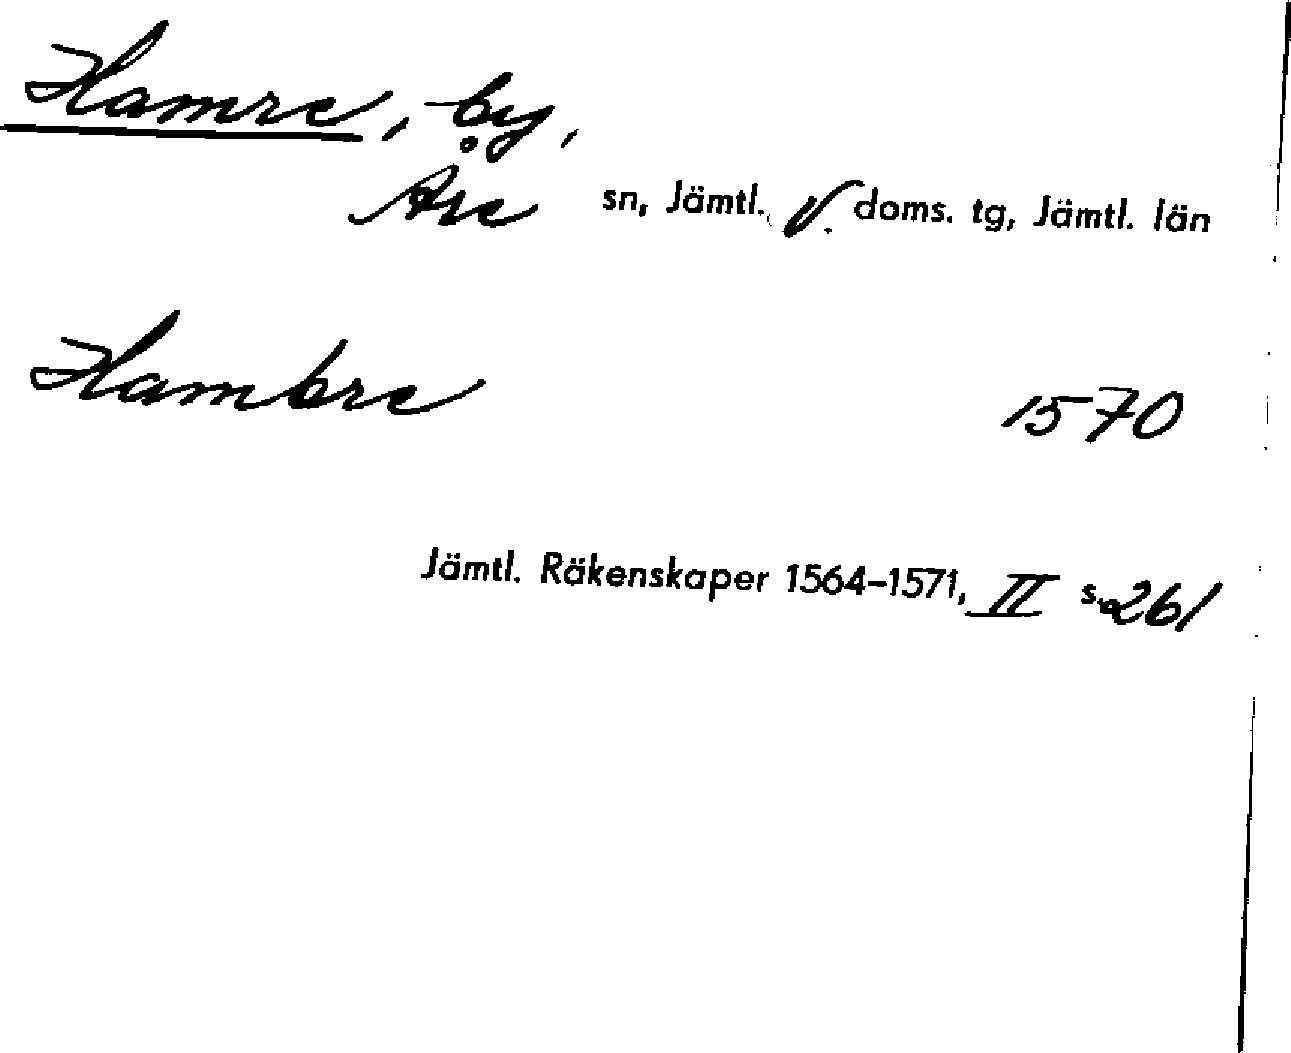 Hamre, by,
Åre sn, Jämtl. V. doms. tg, Jämtl. län
Hambre 1570
Jämtl. Räkenskaper 1564-1571, II s. 261